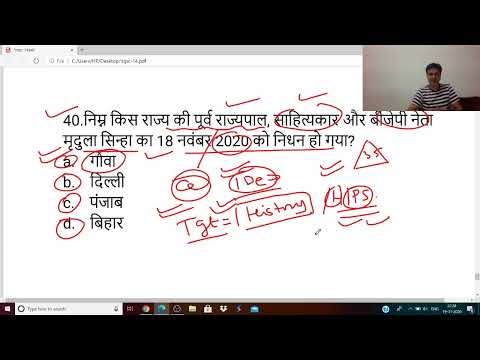 C:/Users/HP/Desktop/tgpc-14.pdf
40.निम्न किस राज्य की पूर्व राज्यपाल, साहित्यकार और बीजेपी नेता
मृदुला सिन्हा का 18 नवंबर 2020 को निधन हो गया?
a. गोवा
b. दिल्ली
c. पंजाब
d. बिहार
Tgt = History
IPS
Type here to search
ENG